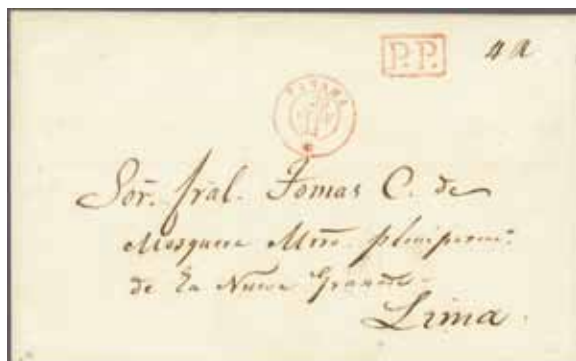 P.P. 4 a
PANAMA
Sor. Gral. Tomas C. de
Mosquera Mtro. plenipoten.
de La Nueva Granada
Lima